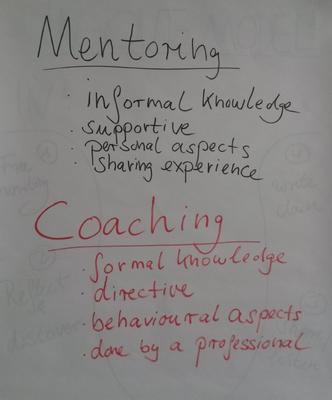 Mentoring
· informal knowledge
· supportive
· personal aspects
· sharing experience
Coaching
· formal knowledge
· directive
· behavioural aspects
· done by a professional